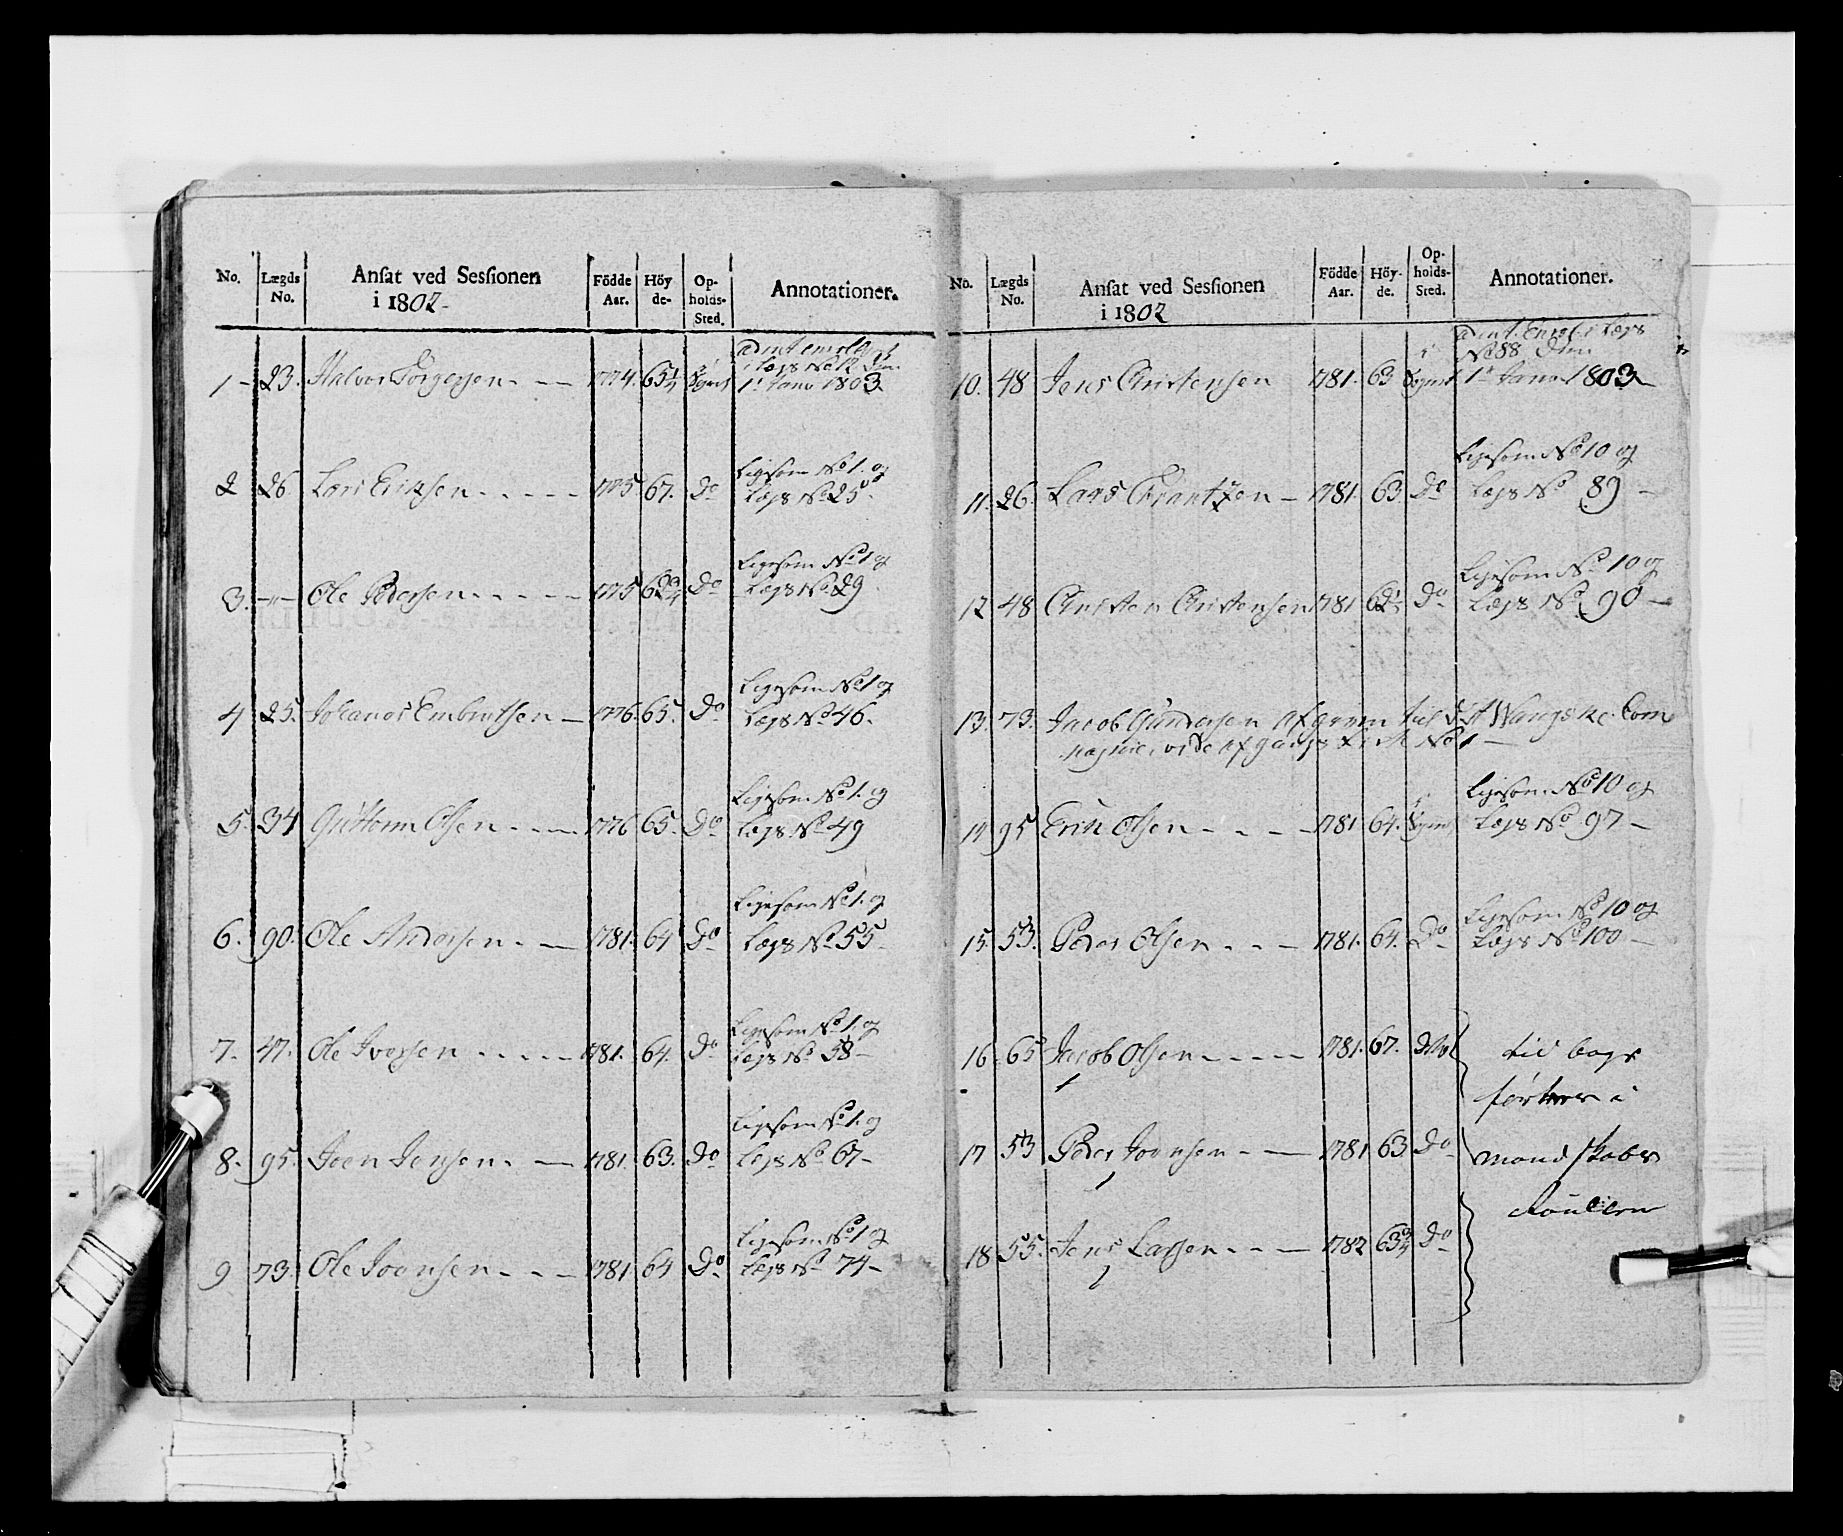 No. Lægds No. Ansat ved Sessionen i 1802 Födde Aar. Höy de. Op- holds- Sted. Annotationer.
i Lægs No 12 den
1 23. Halvor Torgersen 1774. 65¼ 1te Janv 1803
Ligesom No 1. og
2 26 Lars Eriksen 1775 67. Do Lægs No 25
Ligesom No 1 og
3. -"- Ole Pedersen 1775 62¾ Do Lægs No 29
Ligesom No 1 og
4 25. Johanes Embretsen 1776. 65. Do Lægs No 46.
Ligesom No 1. og
5. 34 Guttorm Olsen 1776 65. Do Lægs No 49
Ligesom No 1. og
6. 90. Ole Andersen 1781. 64 Do Lægs No 55
Ligesom No 1. og
7. 47. Ole Iversen 1781. 64. Do Lægs No 58
Ligesom No 1. og
8. 95. Joen Jensen 1781. 63. Do Lægs No 67
Ligesom No 1 og
9 73. Ole Joensen 1781 64 Do Lægs No 74
No. Lægds No. Ansat ved Sessionen i 1802 Födde Aar. Höy- de. Op- holds- Sted. Annotationer.
No 88 den
10. 48 Jens Christensen 1781. 63 1te Janv 1803
Ligesom No 10 og
11. 26. Lars Frantzen 1781. 63 Do Lægs No 89
Ligesom No 10 og
12 48 Christen Christensen 1781 62½ Do Lægs No 90
13. 73. Jacob Gundersen afgaaen til det Wangske Com
pagnie, vide afgangs List No 1
Ligesom No 10 og
14 95 Erik Olsen 1781 64. Lægs No 97
Ligesom No 10 og
15. 53. Peder Olsen 1781. 64. Do Lægs No 100
16. 65 Jacob Olsen 1781. 67. dito til bage
fører i
17 53 Peder Joensen 1781 63 Do mandskabs
Roullen
18 55. Jens Larsen 1782 63¾ Do